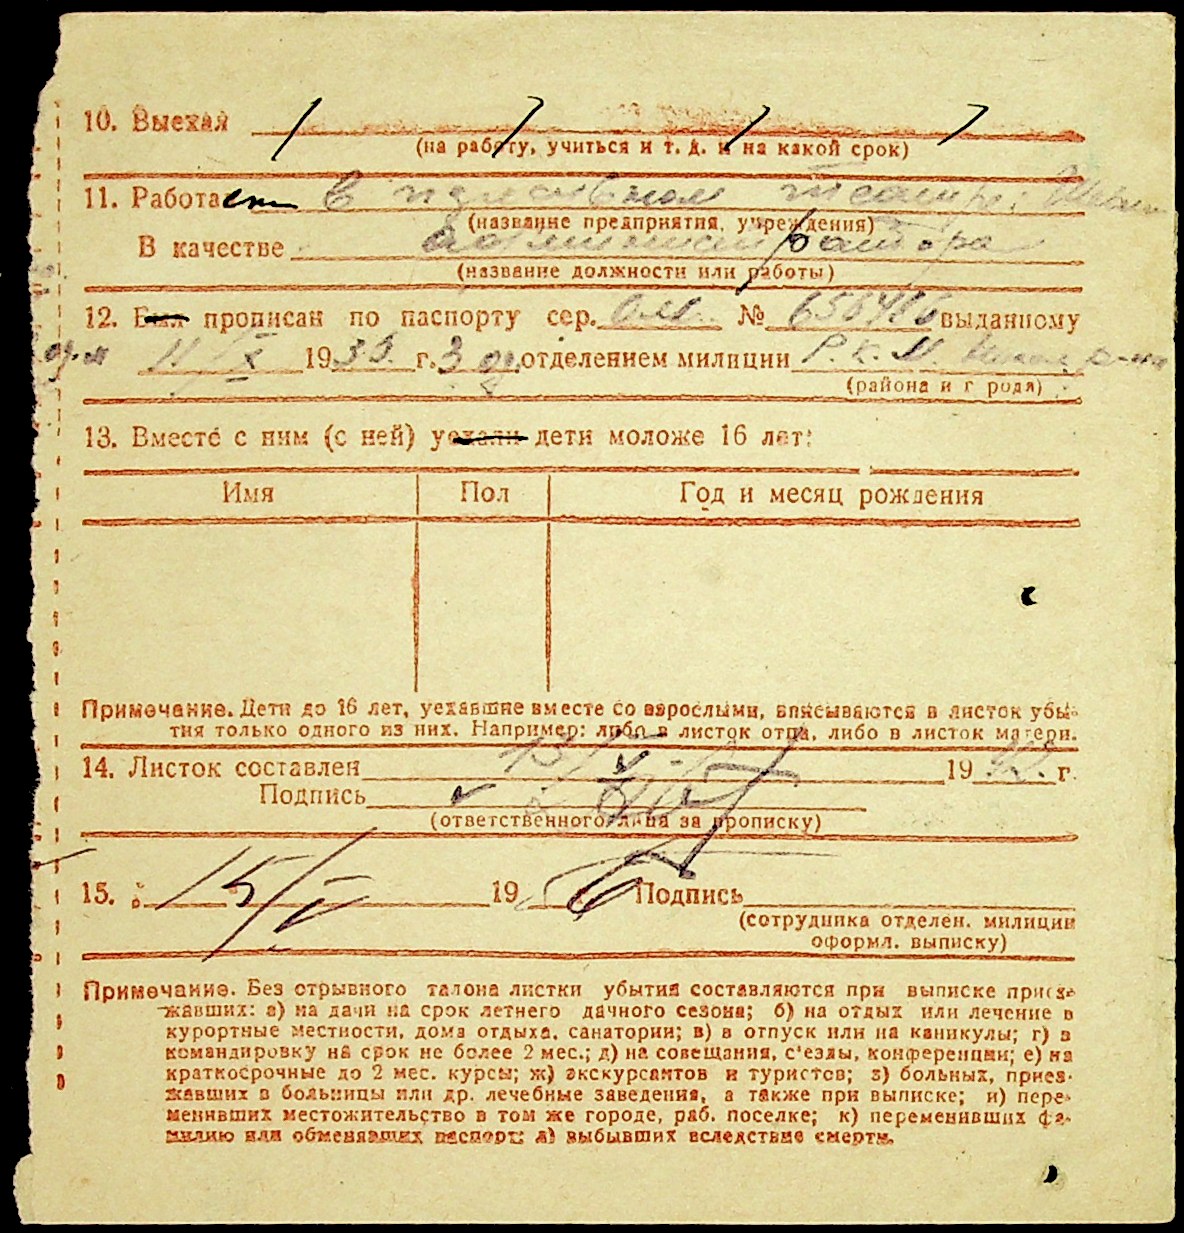 10. Выехал
(на работу, учиться и т. д. и на какой срок)
11. Работает в театре
(название предприятия, учреждения)
В качестве администратора
(название должности или работы)
12. Был прописан по паспорту сер. № 656486 выданному
11/X 1939. г. 3 отделением милиции Р. К. М
(района и города)
13. Вместе с ним (с ней) уехали дети моложе 16 лет:
Имя Пол Год и месяц рождения
Примечание. Дети до 16 лет, уехавшие вместе со взрослыми, вписываются в листок убы-
тия только одного из них. Например: либо в листок отца, либо в листок матери.
14. Листок составлен 13/V 1942. г.
Подпись
(ответственного лица за прописку)
15. 15/V 19 Подпись
(сотрудника отделен. милиции
оформл. выписку)
Примечание. Без отрывного талона листки убытия составляются при выписке приез-
жавших: а) на дачи на срок летнего дачного сезона; б) на отдых или лечение в
курортные местности, дома отдыха, санатории; в) в отпуск или на каникулы; г) в
командировку на срок не более 2 мес.; д) на совещания, с'езды, конференции; е) на
краткосрочные до 2 мес. курсы; ж) экскурсантов и туристов; з) больных, приез-
жавших в больницы или др. лечебные заведения, а также при выписке; и) пере-
менивших местожительство в том же городе, раб. поселке; к) переменивших фа-
милию или обменявших паспорт; л) выбывших вследствие смерти.